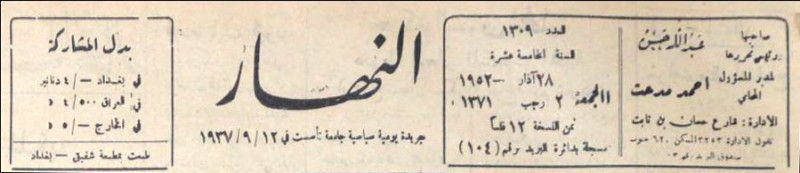 صاحبها
ورئيس تحريرها
المدير المسؤول احمد مدحت
المحامي
الادارة : شارع حسان بن ثابت
تلفون الادارة ٣٢٥٣ السكن ٦٢٠
العدد ١٣٠٩
السنة الخامسة عشرة
الجمعة ٢٨ آذار - ١٩٥٢
٢ رجب ١٣٧١
ثمن النسخة ١٢ فلساً
مسجلة بدائرة البريد برقم (١٠٤)
النهار
جريدة يومية سياسية جامعة تأسست في ١٢/٩/١٩٣٧
بدل المشاركة
في بغداد -/٤ دنانير
في العراق ٥٠٠/٤ د
في الخارج -/٥ د
طبعت بمطبعة شفيق - بغداد